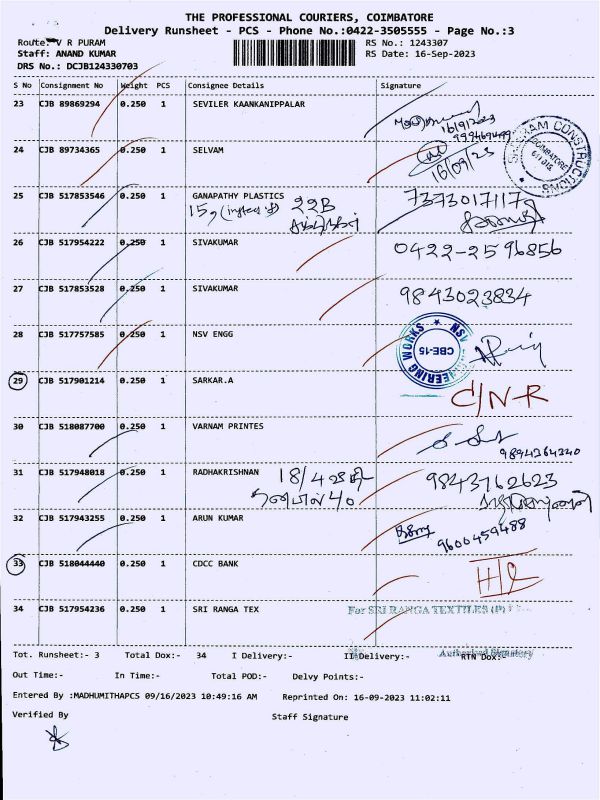 THE PROFESSIONAL COURIERS, COIMBATORE
Delivery Runsheet - PCS - Phone No.:0422-3505555 - Page No.:3
Route: V R PURAM RS No.: 1243307
Staff: ANAND KUMAR RS Date: 16-Sep-2023
DRS No.: DCJB124330703
S No Consignment No Weight PCS Consignee Details Signature
23 CJB 89869294 0.250 1 SEVILER KAANKANIPPALAR
16/9/2023
24 CJB 89734365 0.250 1 SELVAM
16/09/23
COIMBATORE
25 CJB 517853546 0.250 1 GANAPATHY PLASTICS 22B
26 CJB 517954222 0.250 1 SIVAKUMAR 0422-2596856
27 CJB 517853528 0.250 1 SIVAKUMAR 9843023834
28 CJB 517757585 0.250 1 NSV ENGG
NSV ENGINEERING WORKS CBE-15
29 CJB 517901214 0.250 1 SARKAR.A C/N-R
30 CJB 518087700 0.250 1 VARNAM PRINTES
9894364340
31 CJB 517948018 0.250 1 RADHAKRISHNAN 18/4 9843762623
40
32 CJB 517943255 0.250 1 ARUN KUMAR 9600459488
33 CJB 518044440 0.250 1 CDCC BANK
34 CJB 517954236 0.250 1 SRI RANGA TEX For SRI RANGA TEXTILES (P)
Authorised Signatory
Tot. Runsheet:- 3 Total Dox:- 34 I Delivery:- II Delivery:- RTN Dox:-
Out Time:- In Time:- Total POD:- Delvy Points:-
Entered By :MADHUMITHAPCS 09/16/2023 10:49:16 AM Reprinted On: 16-09-2023 11:02:11
Verified By Staff Signature